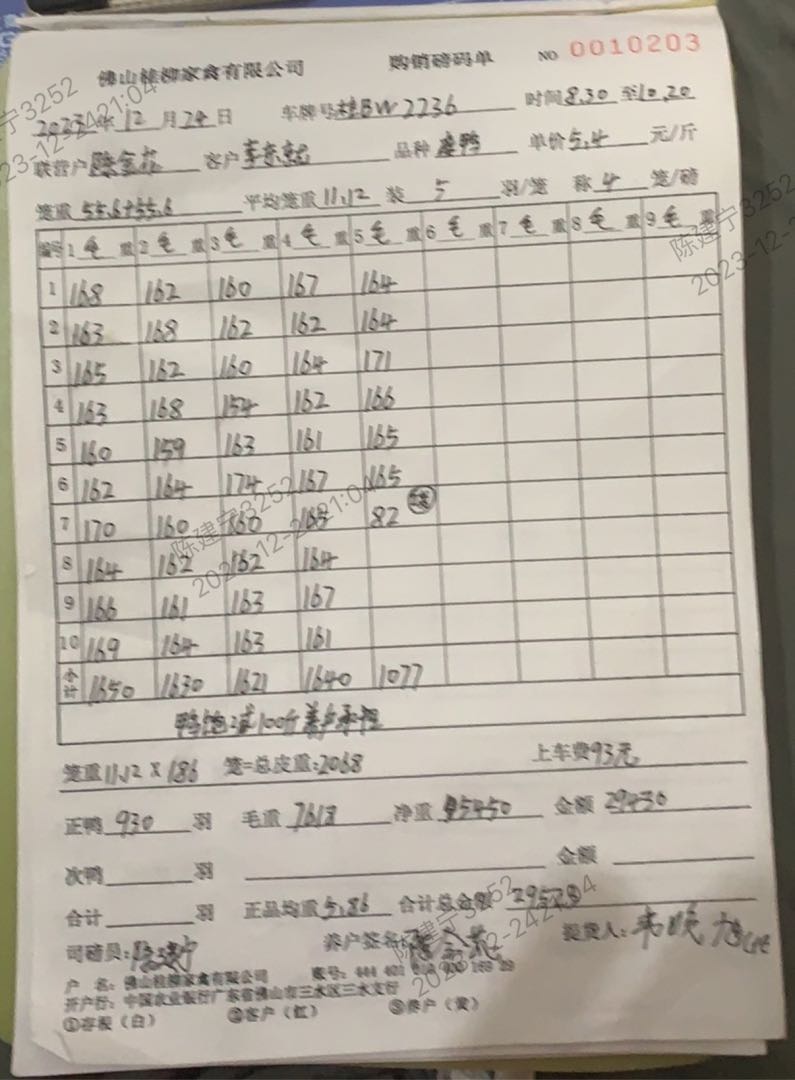 佛山桂柳家禽有限公司 购销磅码单 NO 0010203
2023年 12 月 24 日 车牌号桂BW2236 时间8.30 至10.20
联营户 陈金花 客户 品种 单价5.4 元/斤
笼重 55.6+55.6 平均笼重11.12 装 5 羽/笼 称 4 笼/磅
编号 1 毛 重 2 毛 重 3 毛 重 4 毛 重 5 毛 重 6 毛 重 7 毛 重 8 毛 重 9 毛 重
1 168 162 160 167 164
2 163 168 162 162 164
3 165 162 160 164 171
4 163 168 154 162 166
5 160 159 163 161 165
6 162 164 174 167 165
7 170 160 160 82
8 164 162 162 164
9 166 161 163 167
10 169 164 163 161
小计 1650 1630 1621 1640 1077
鸭饱减100斤养户承担
笼重11.12 X 186 笼=总皮重:2068 上车费93元
正鸭 930 羽 毛重 7618 净重 5450 金额 29430
次鸭 羽 金额
合计 羽 正品均重5.86 合计总金额
司磅员: 陈建宁 养户签名: 提货人:
户 名: 佛山桂柳家禽有限公司 账号:
开户行: 中国农业银行广东省佛山市三水区三水支行
①存根(白) ②客户(红) ③养户(黄)
陈建宁3252
2023-12-2421:04